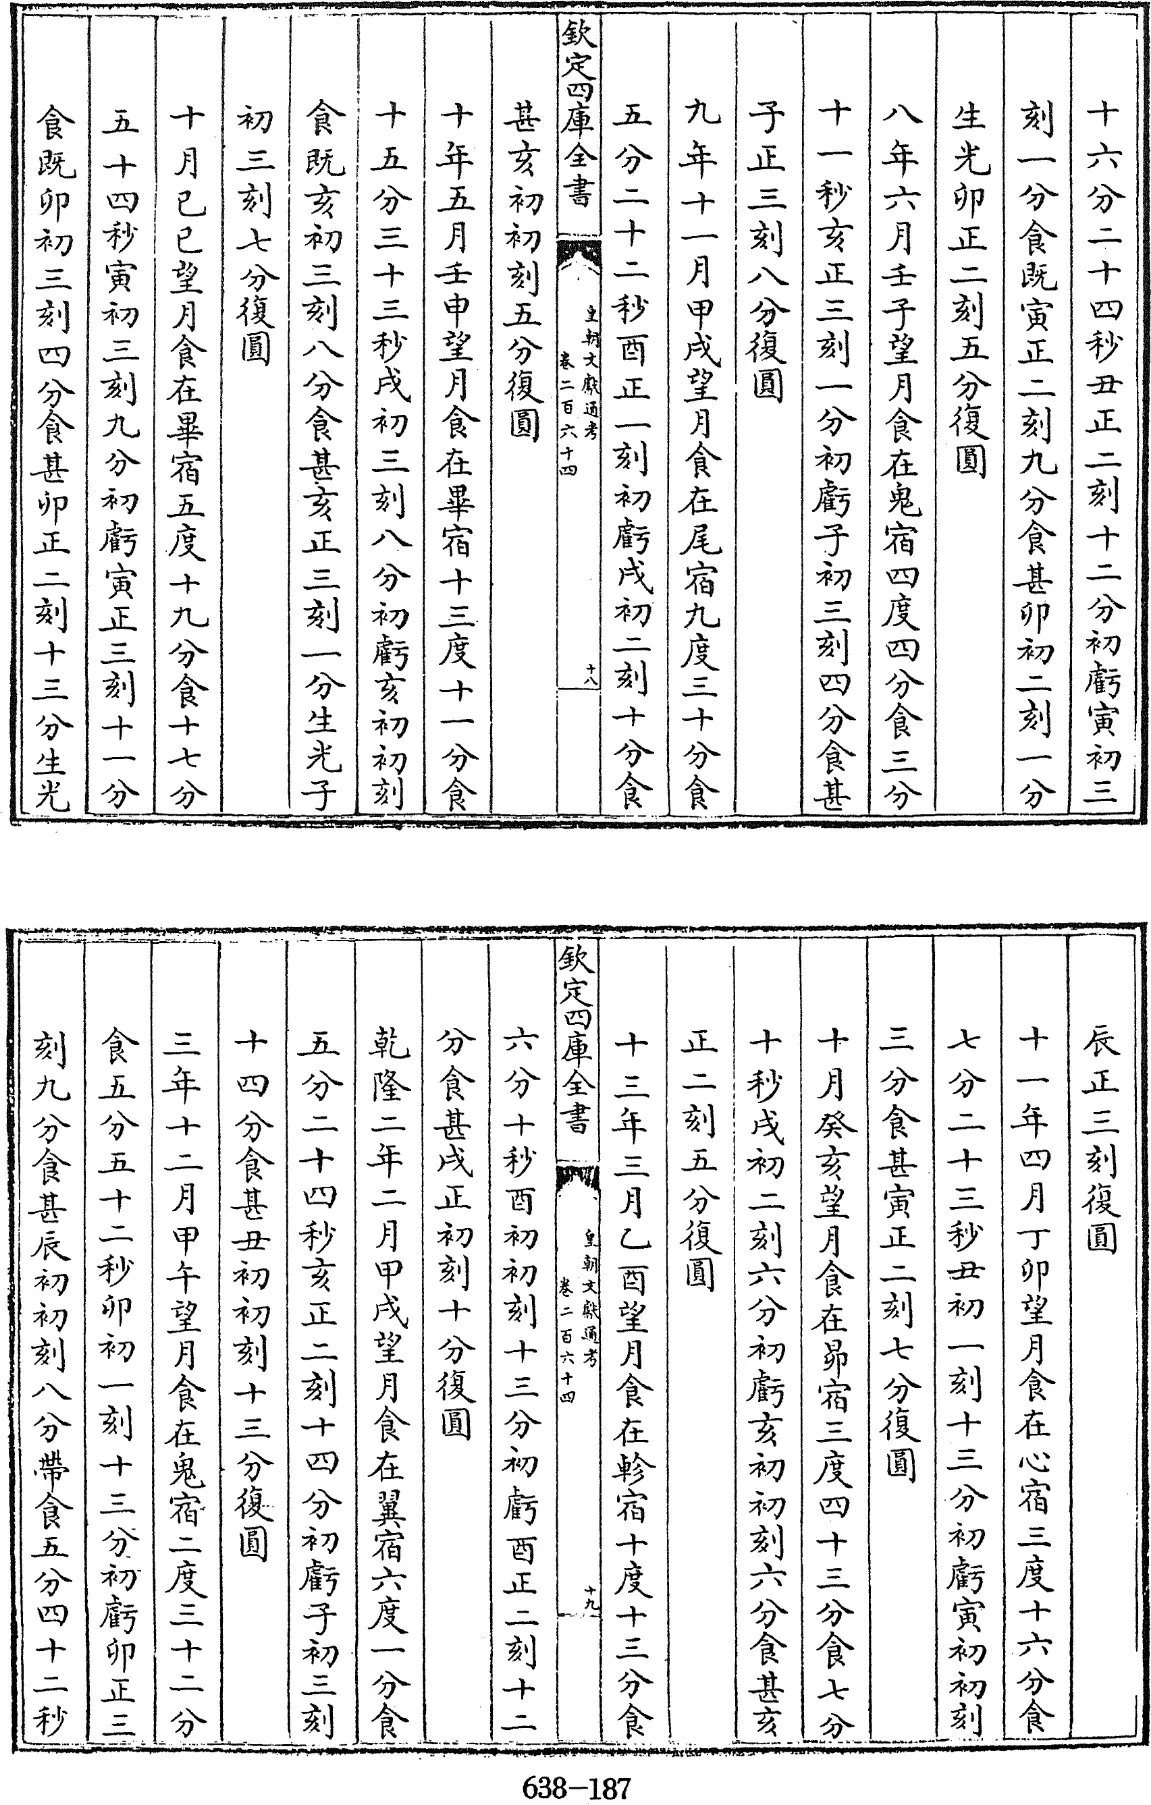 十六分二十四秒丑正二刻十二分初虧寅初三
刻一分食既寅正二刻九分食甚卯初二刻一分
生光卯正二刻五分復圓
八年六月壬子望月食在鬼宿四度四分食三分
十一秒亥正三刻一分初虧子初三刻四分食甚
子正三刻八分復圓
九年十一月甲戌望月食在尾宿九度三十分食
五分二十二秒酉正一刻初虧戌初二刻十分食
欽定四庫全書
皇朝文獻通考
卷二百六十四
十八
甚亥初初刻五分復圓
十年五月壬申望月食在畢宿十三度十一分食
十五分三十三秒戌初三刻八分初虧亥初初刻
食既亥初三刻八分食甚亥正三刻一分生光子
初三刻七分復圓
十月已已望月食在畢宿五度十九分食十七分
五十四秒寅初三刻九分初虧寅正三刻十一分
食既卯初三刻四分食甚卯正二刻十三分生光
辰正三刻復圓
十一年四月丁卯望月食在心宿三度十六分食
七分二十三秒丑初一刻十三分初虧寅初初刻
三分食甚寅正二刻七分復圓
十月癸亥望月食在昴宿三度四十三分食七分
十秒戌初二刻六分初虧亥初初刻六分食甚亥
正二刻五分復圓
十三年三月乙酉望月食在軫宿十度十三分食
欽定四庫全書
皇朝文獻通考
卷二百六十四
十九
六分十秒酉初初刻十三分初虧酉正二刻十二
分食甚戌正初刻十分復圓
乾隆二年二月甲戌望月食在翼宿六度一分食
五分二十四秒亥正二刻十四分初虧子初三刻
十四分食甚丑初初刻十三分復圓
三年十二月甲午望月食在鬼宿二度三十二分
食五分五十二秒卯初一刻十三分初虧卯正三
刻九分食甚辰初初刻八分帶食五分四十二秒
638-187